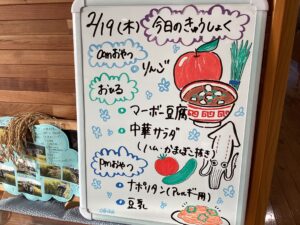 2/19(木) 今日のきゅうしょく
amおやつ
りんご
おひる
マーボー豆腐
中華サラダ
(ハム・かまぼこ抜き)
pmおやつ
ナポリタン(アレルギー用)
豆乳